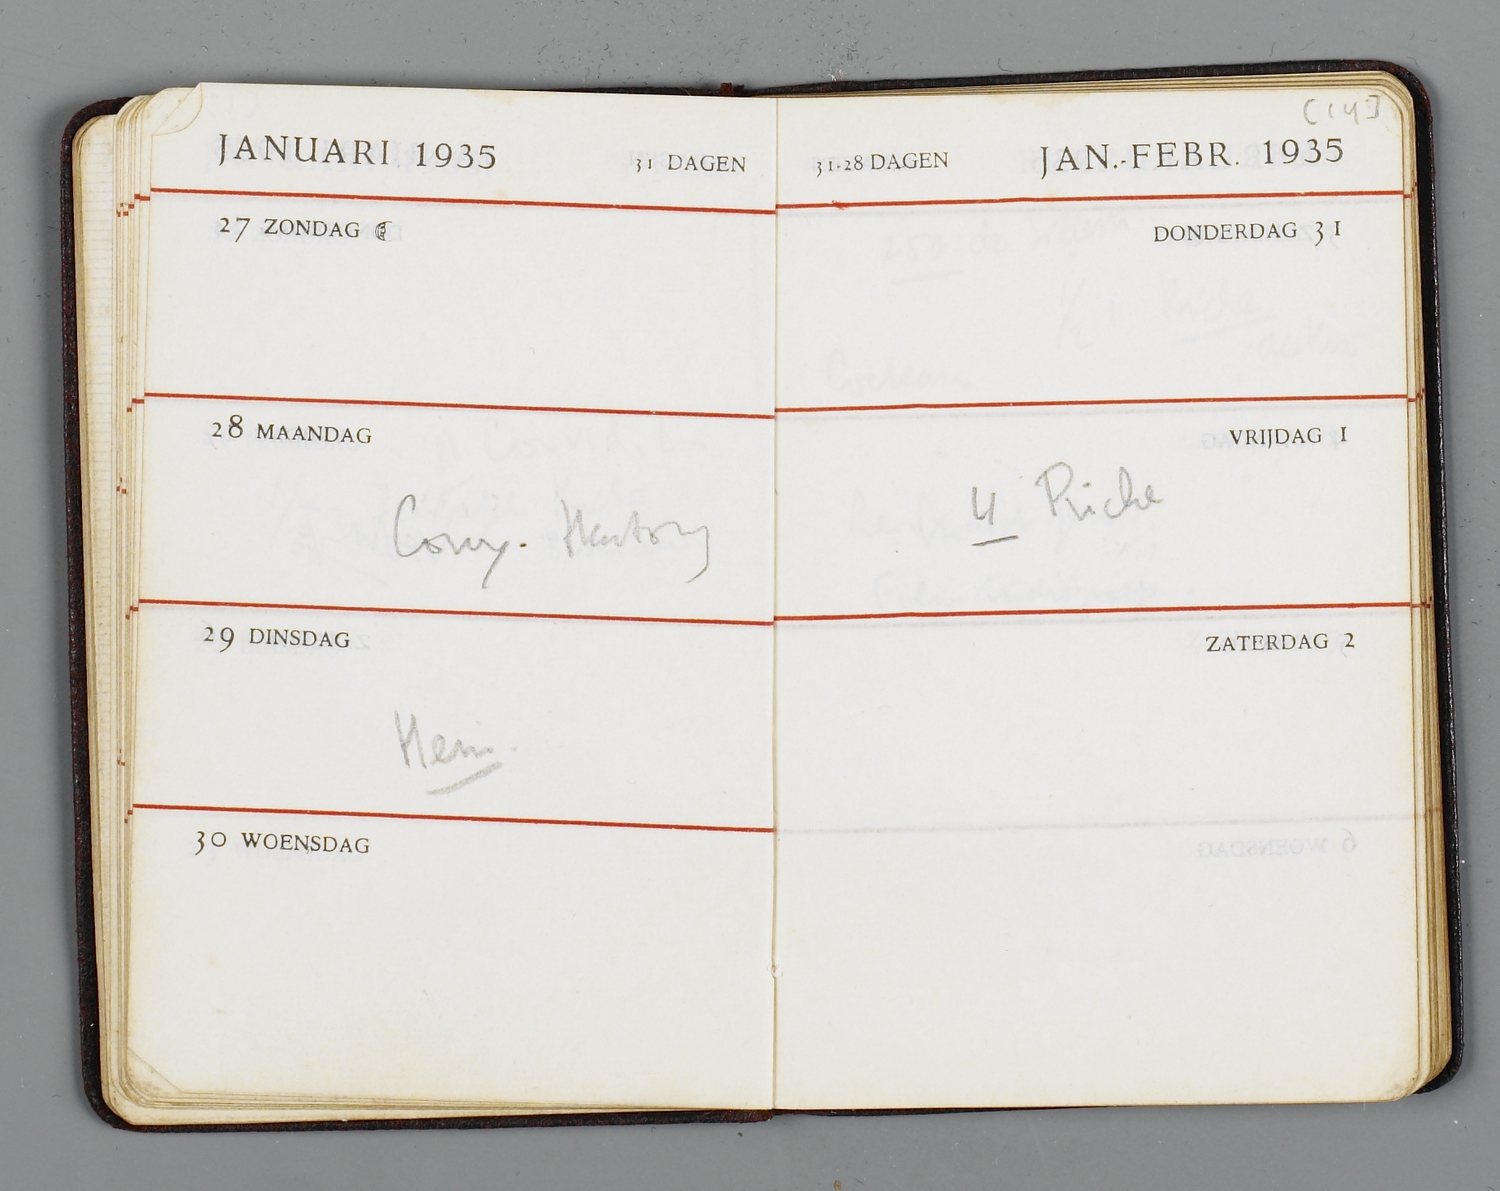 JANUARI. 1935
31 DAGEN
27 ZONDAG
28 MAANDAG
29 DINSDAG
30 WOENSDAG
[14]
31-28 DAGEN
JAN.-FEBR. 1935
DONDERDAG 31
VRIJDAG 1
4 Riche
ZATERDAG 2